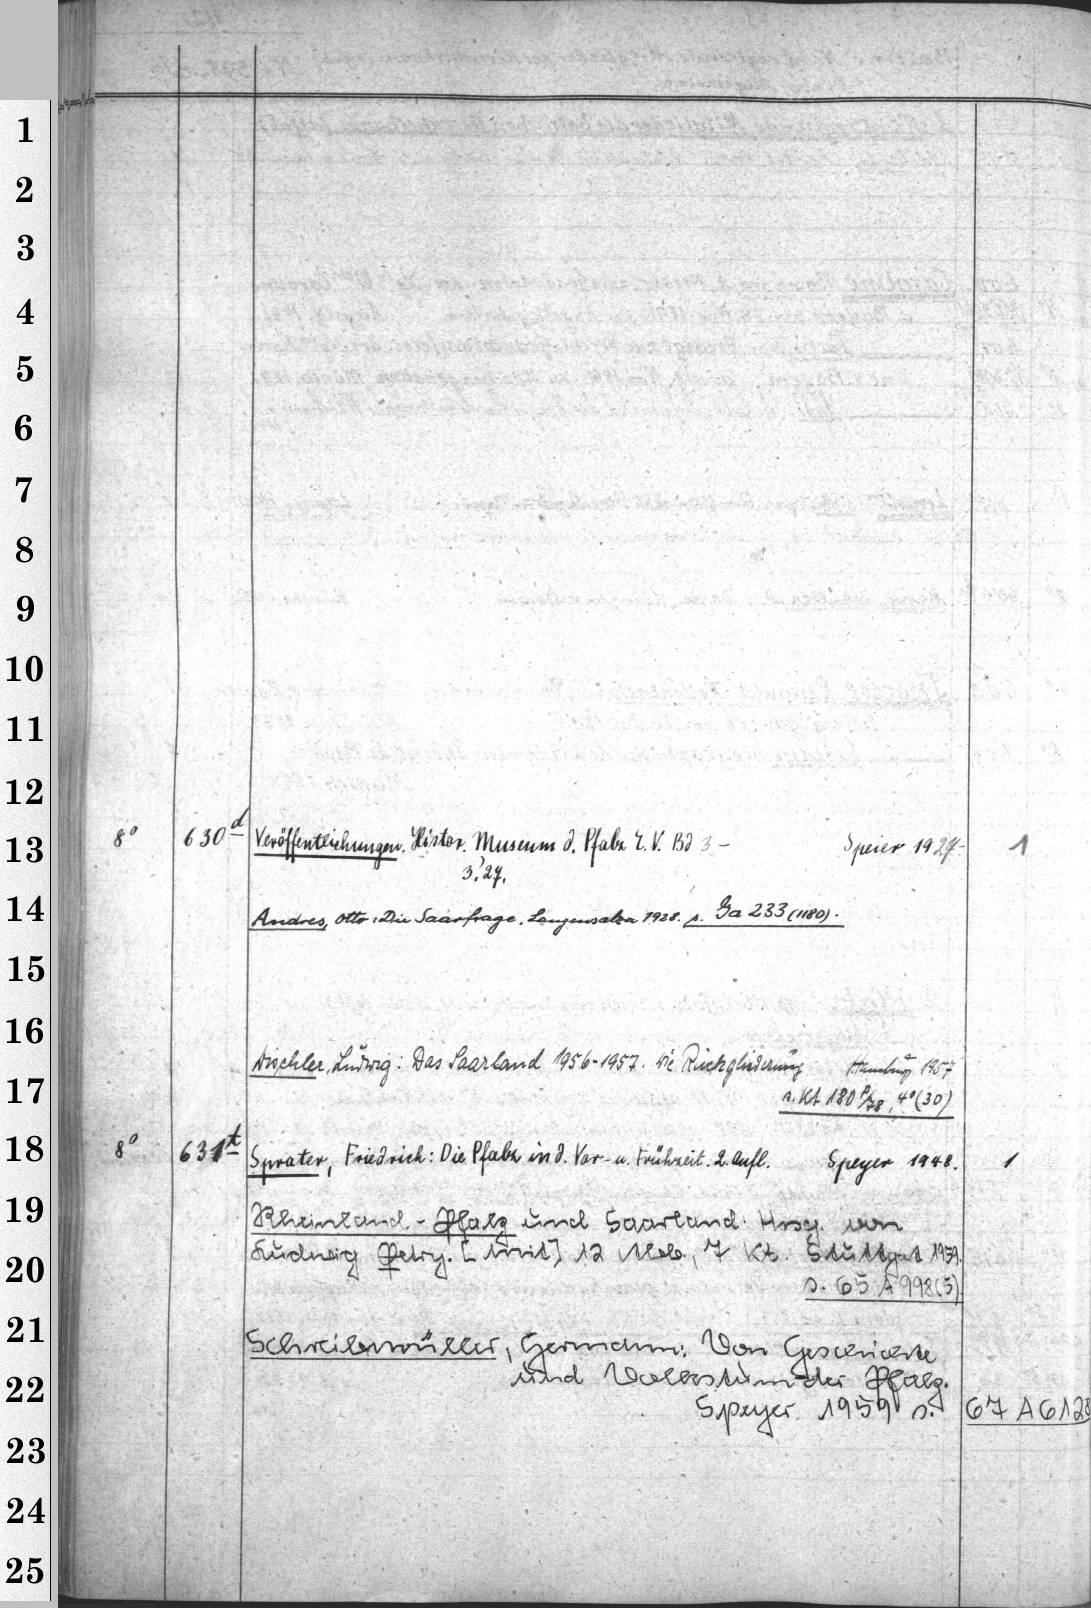 8° 630 d Veröffentlichungen. Histor. Museum d. Pfalz E. V. Bd 3 – Speier 1927– 1
3.'27.
Andres, Otto: Die Saarfrage. Langensalza 1928. s. Ga 233 (1180).
Dischler, Ludwig: Das Saarland 1956-1957. Die Rückgliederung Hamburg 1957
s. Kt 180 P/78, 4° (30)
8° 631 t Sprater, Friedrich: Die Pfalz in d. Vor- u. Frühzeit. 2. Aufl. Speyer 1948. 1
Rheinland-Pfalz und Saarland. Hrsg. von
Ludwig Petry. [Mit] 12 Abb., 7 Kt. Stuttgat 1959.
s. 65 A 998(5)
Schreibmüller, Hermann: Von Geschichte
und Volkstum der Pfalz.
Speyer 1959 s. 67 A 6128
1
2
3
4
5
6
7
8
9
10
11
12
13
14
15
16
17
18
19
20
21
22
23
24
25